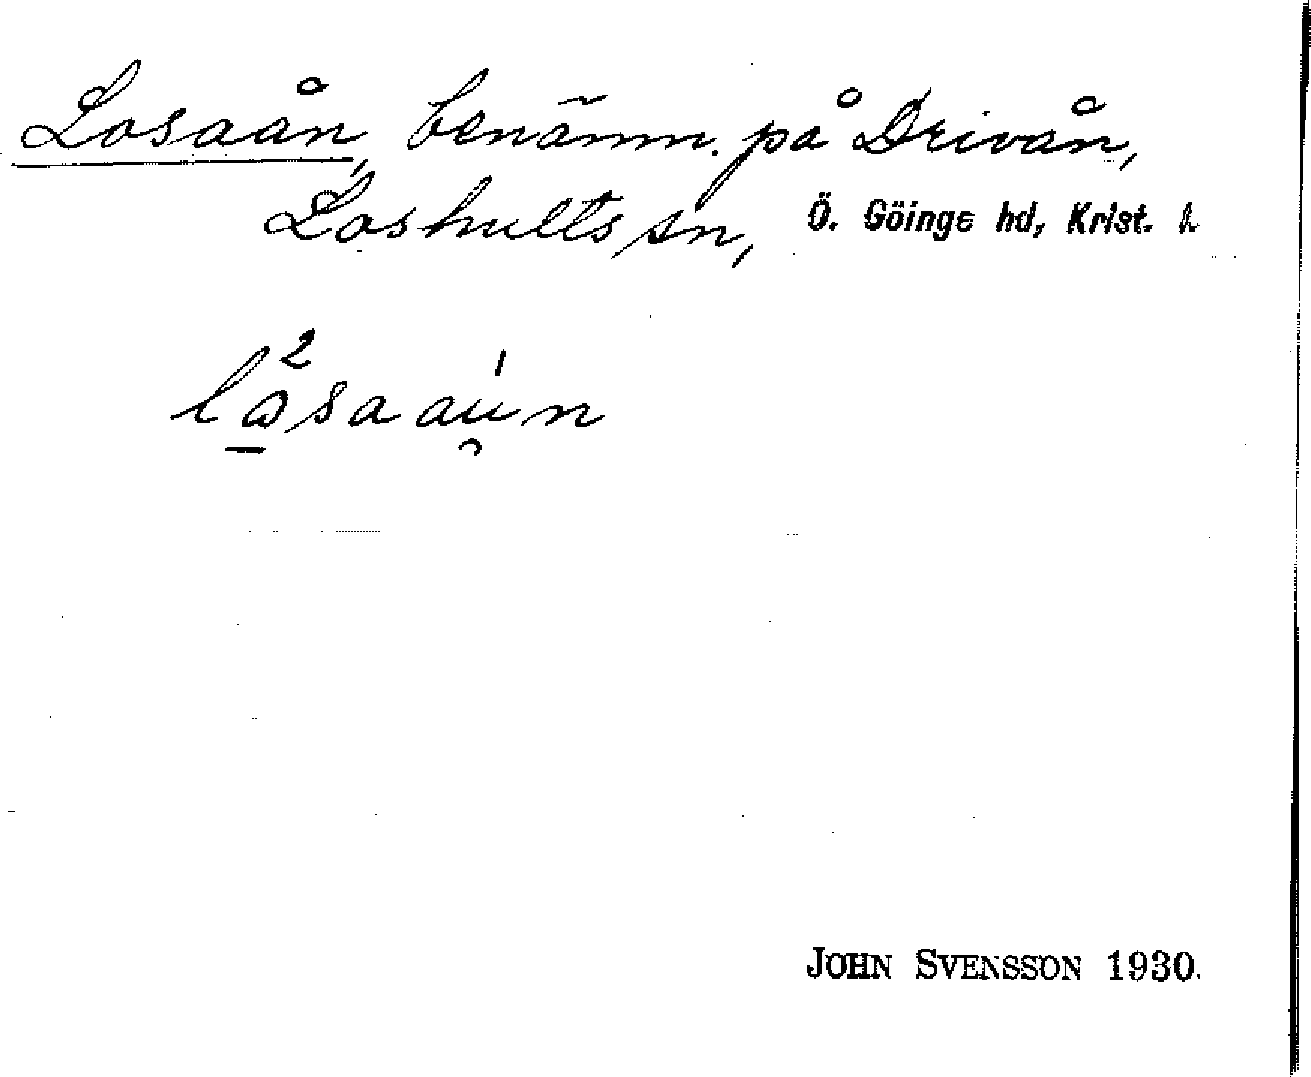 Losaån, benämn. på Drivån,
Loshults sn, Ö. Göinge hd, Krist. l.
JOHN SVENSSON 1930.